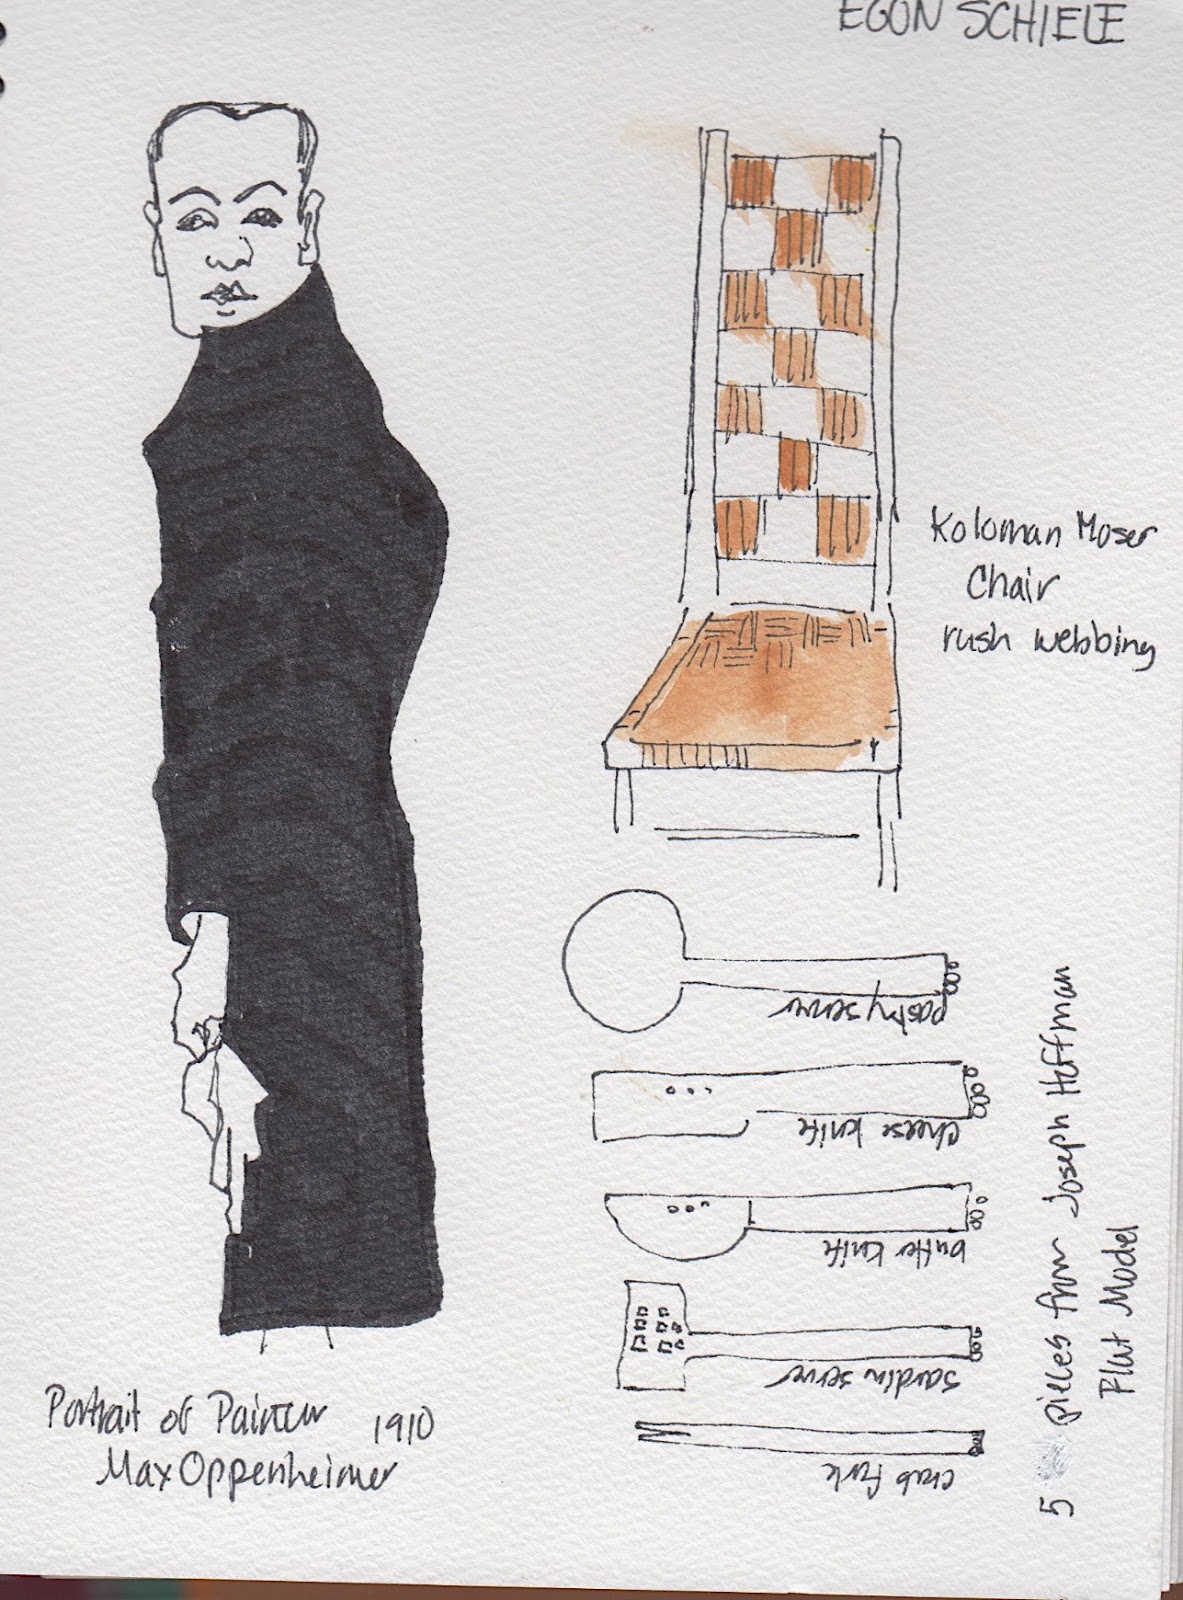 EGON SCHIELE
Koloman Moser
Chair
rush webbing
pastry server
cheese knife
butter knife
sardin server
crab fork
5 pieces from Joseph Hoffman
Flat Model
Portrait of Painter 1910
Max Oppenheimer